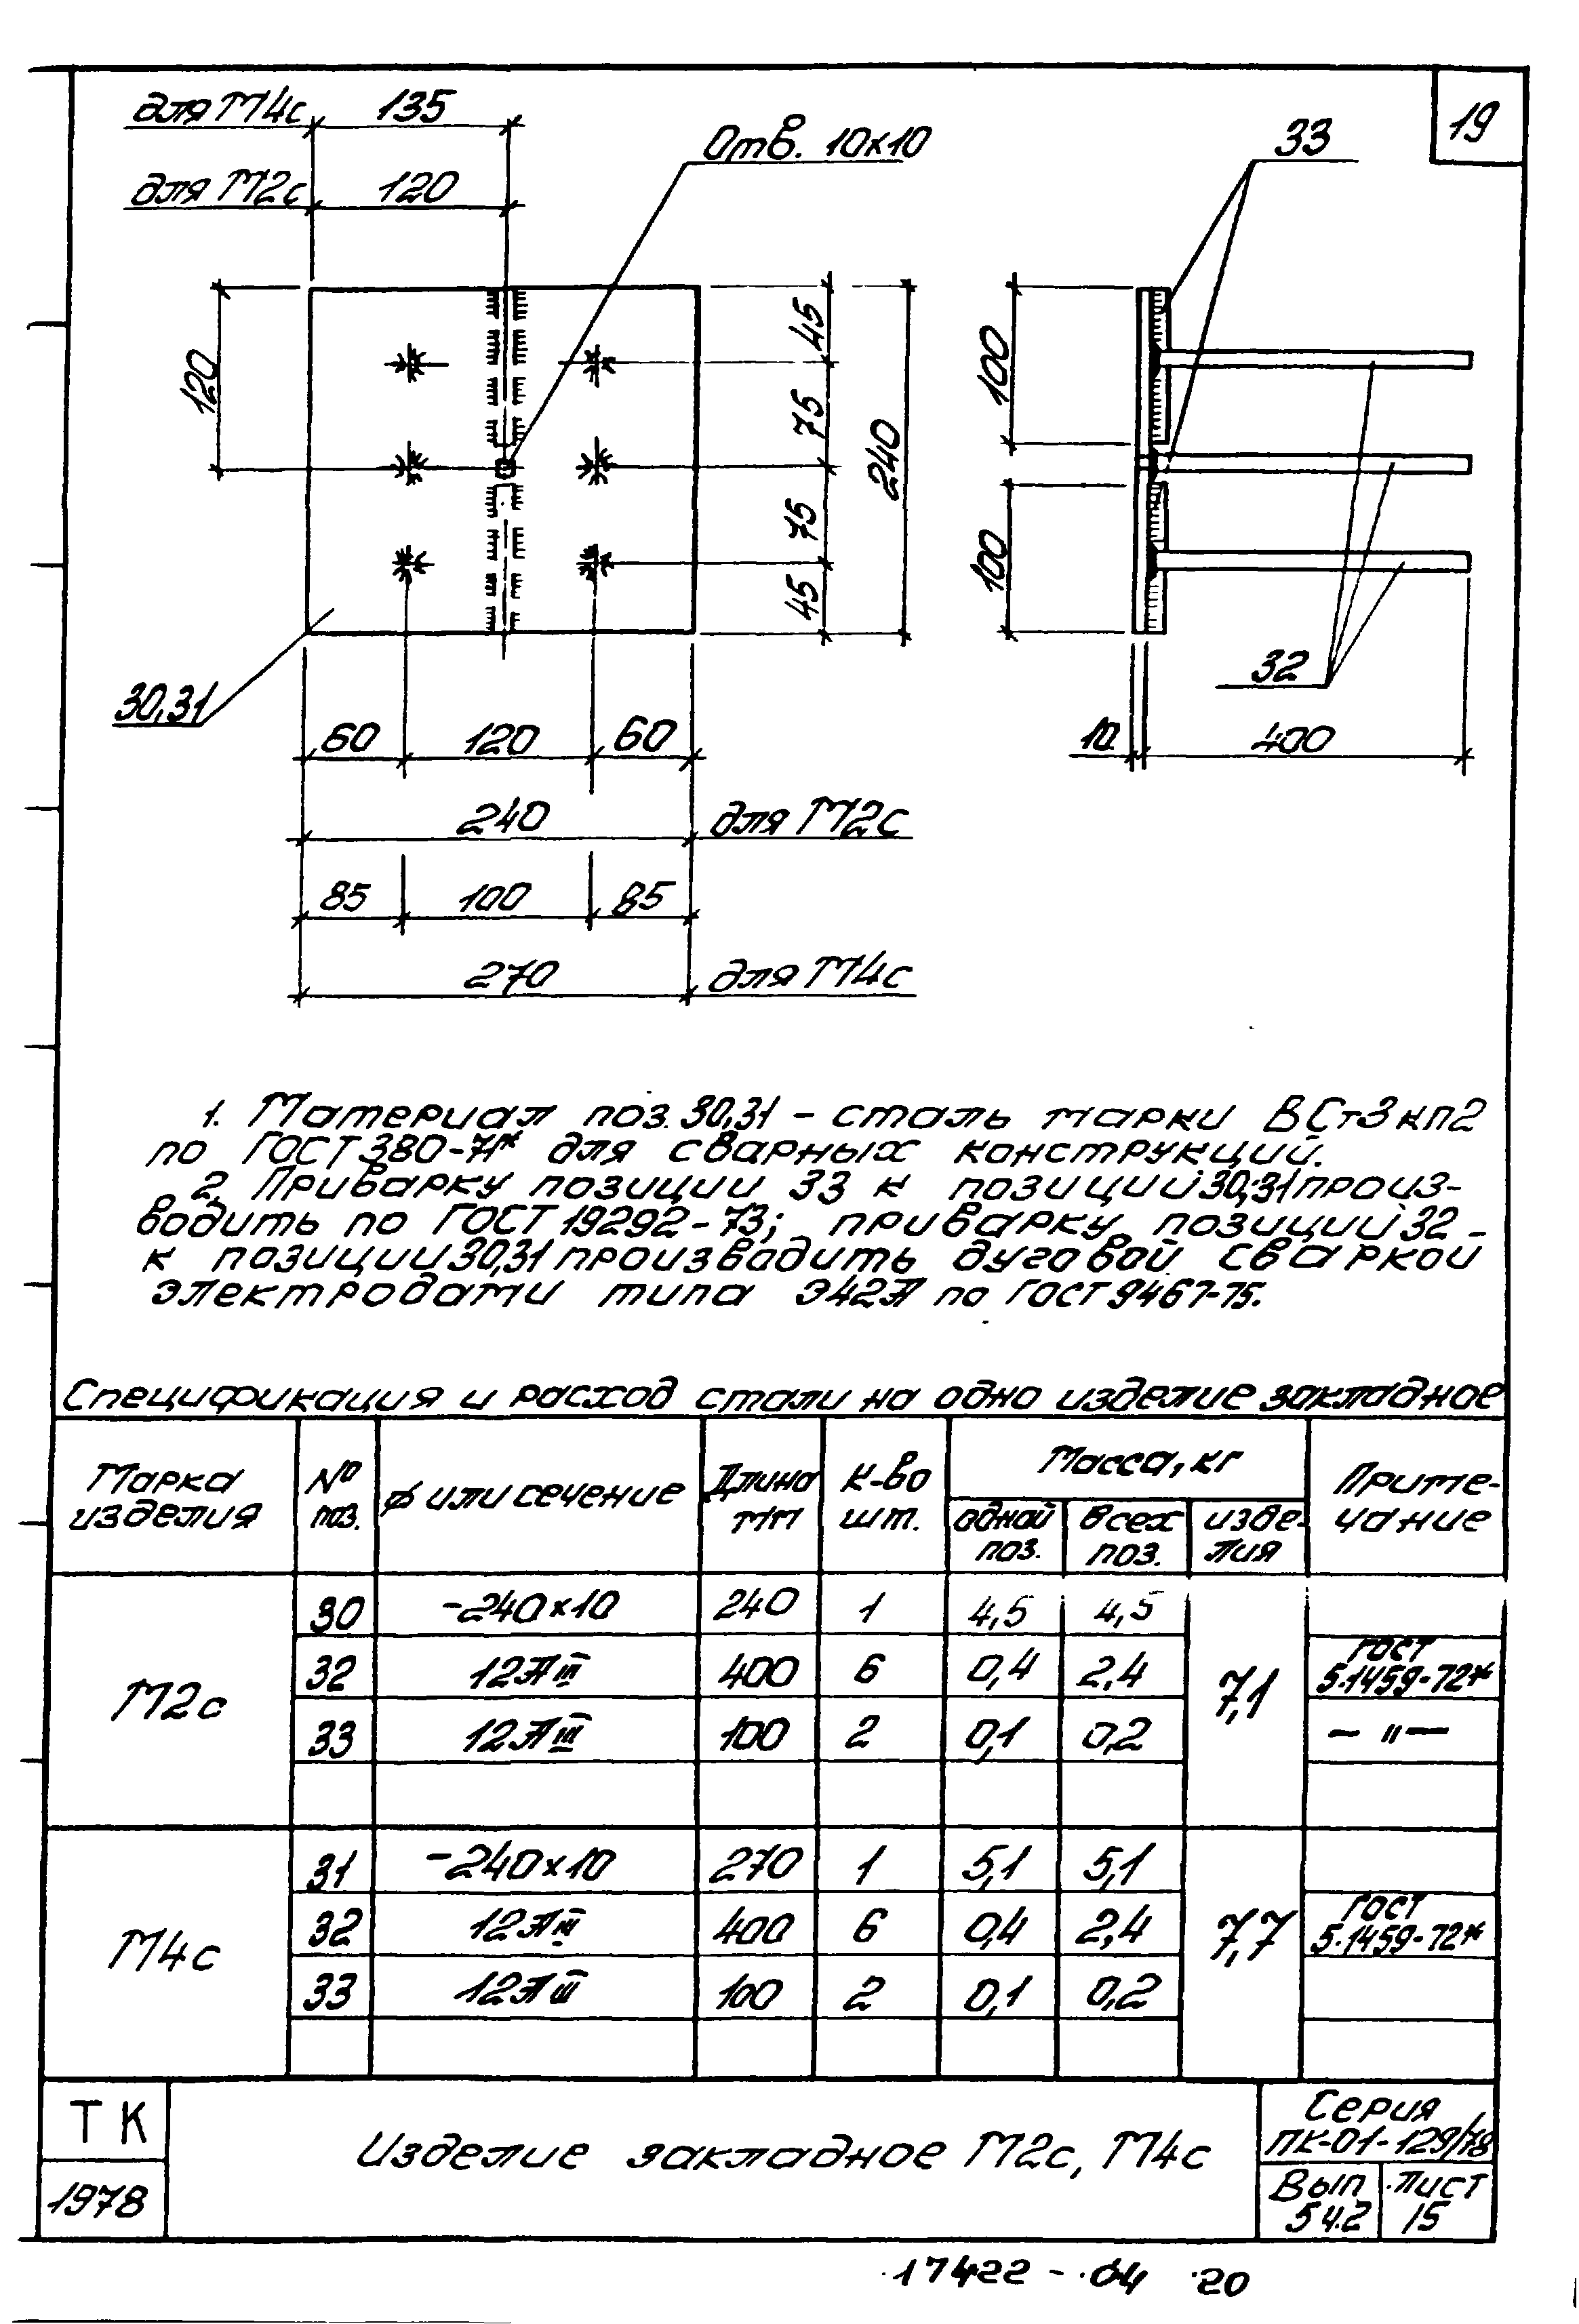 19
для М4с 135
для М2с 120
Отв. 10х10
33
120
45
75
75
45
240
100
100
32
30,31
60 120 60
10 400
240 для М2с
85 100 85
270 для М4с
1. Материал поз. 30,31 – сталь марки ВСт3кп2
по ГОСТ 380-71* для сварных конструкций.
2. Приварку позиции 33 к позиции 30,31 произ-
водить по ГОСТ 19292-73; приварку позиций 32 -
к позиции 30,31 производить дуговой сваркой
электродами типа Э42А по ГОСТ 9467-75.
Спецификация и расход стали на одно изделие закладное
Марка изделия № поз. ф или сечение Длина мм К-во шт. Масса, кг Приме-чание
одной поз. всех поз. изде-лия
М2с 30 -240×10 240 1 4,5 4,5 7,1
32 12АIII 400 6 0,4 2,4 ГОСТ 5.1459-72*
33 12АIII 100 2 0,1 0,2 — " —
М4с 31 -240×10 270 1 5,1 5,1 7,7
32 12АIII 400 6 0,4 2,4 ГОСТ 5.1459-72*
33 12АIII 100 2 0,1 0,2
ТК
1978
Изделие закладное М2с, М4с
Серия
ПК-01-129/78
Вып Лист
5 ч.2 15
17422-04 20